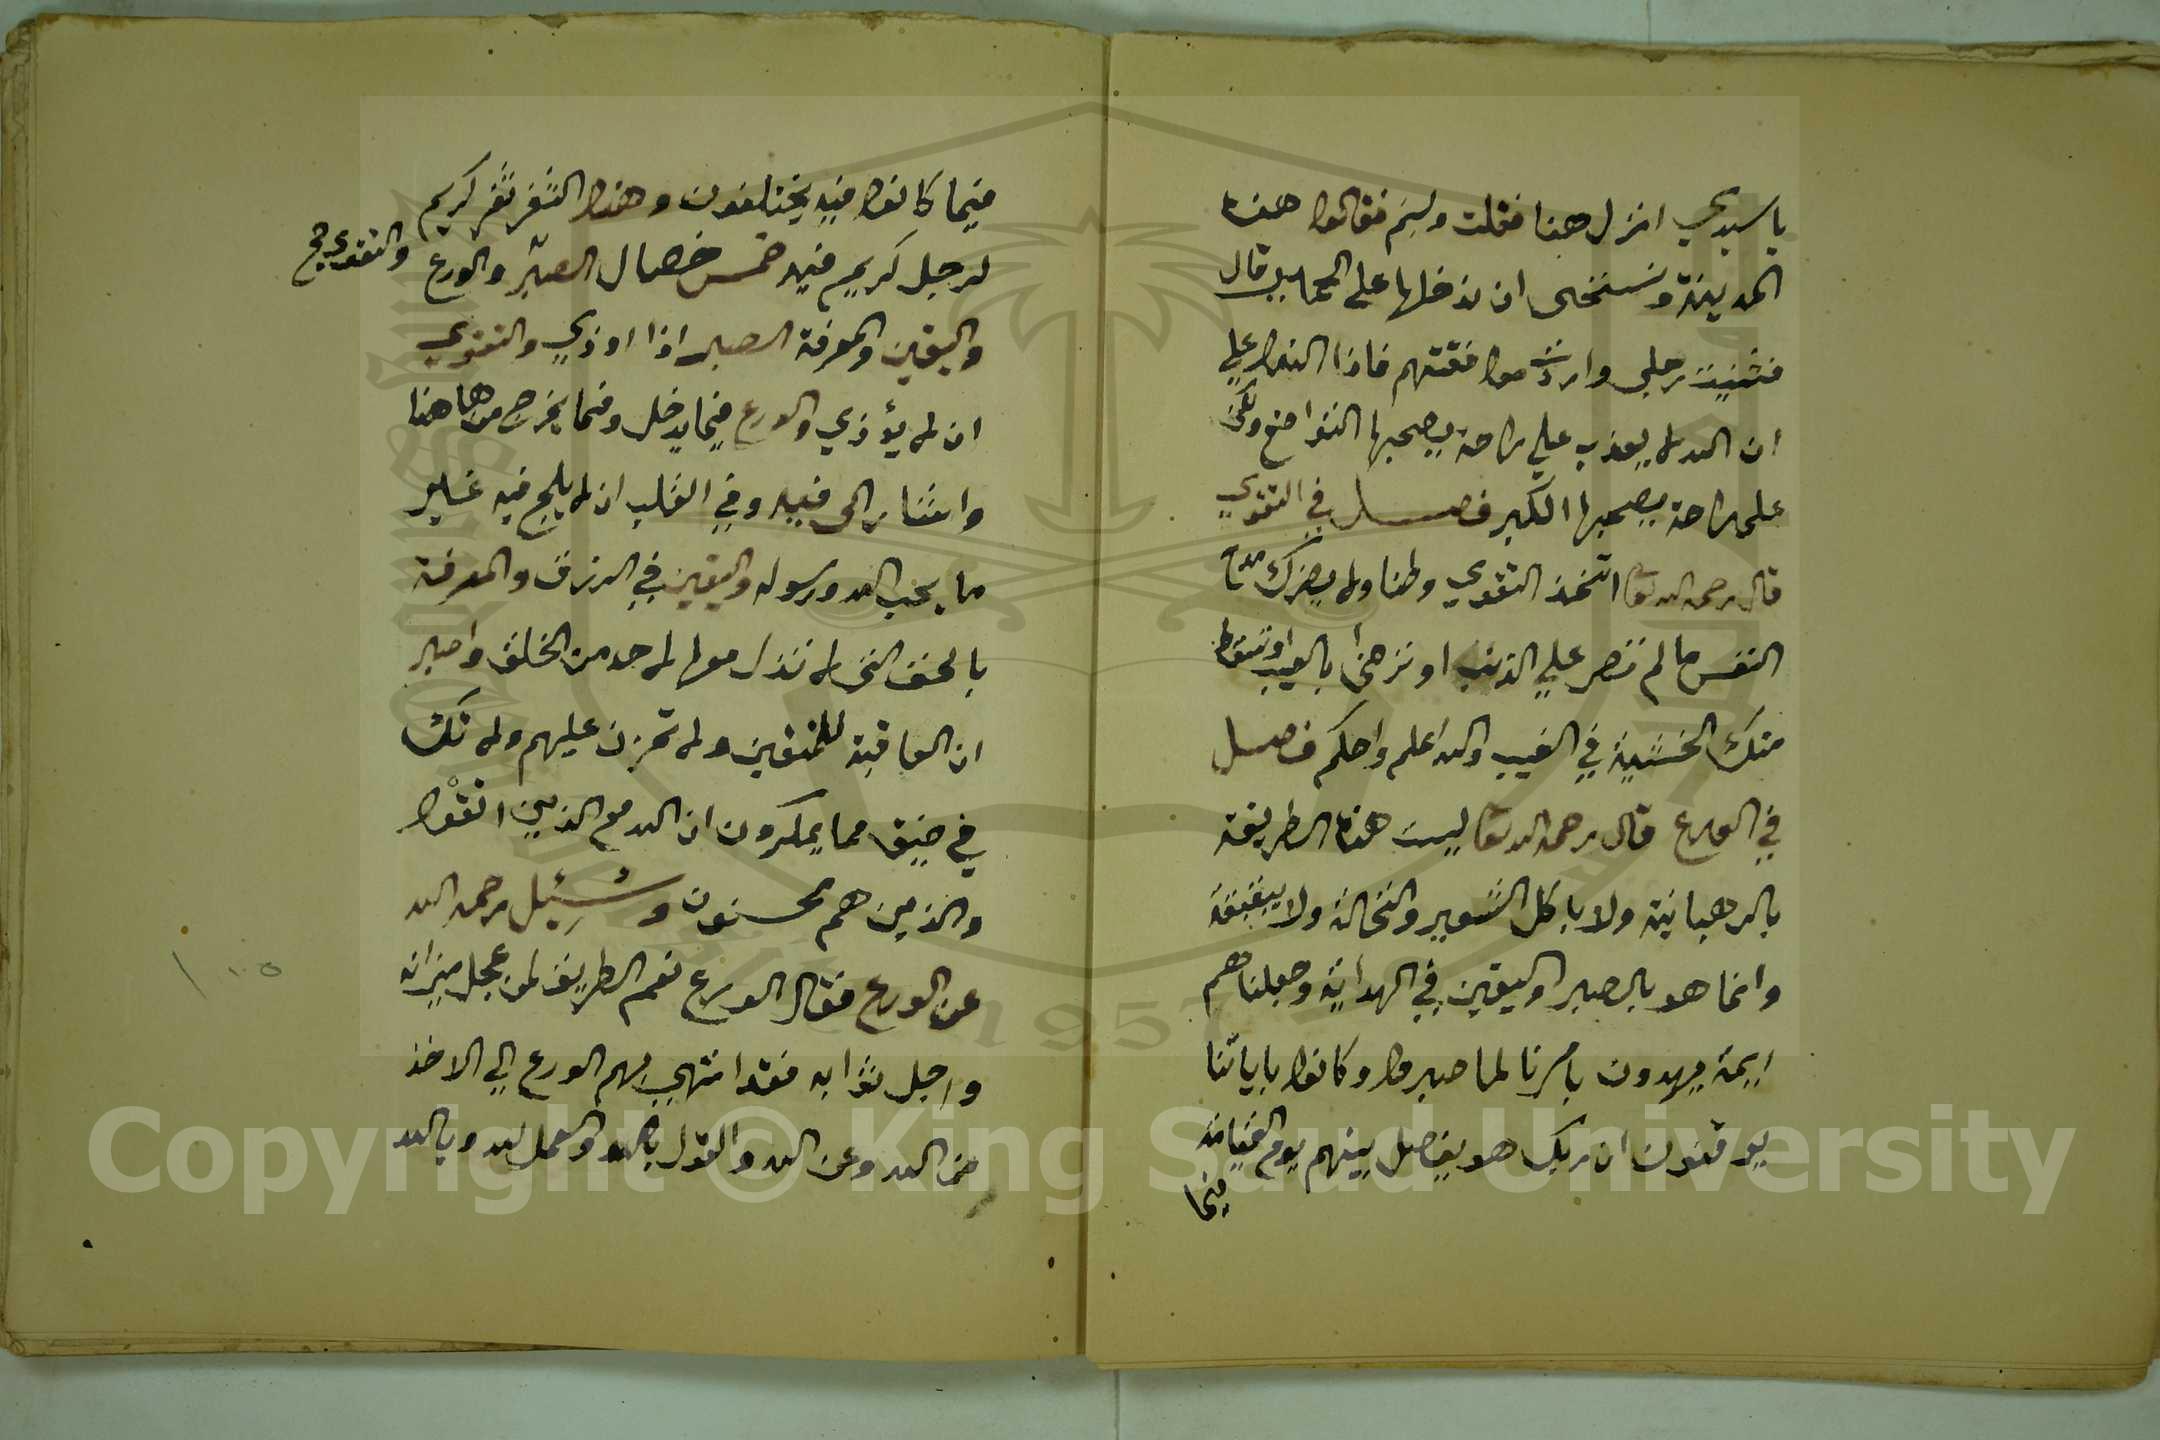 يا سيدي انزل هنا فقلت ولم فقالوا هذه
المدينة ونستحى ان ندخلها على المحامل قال
فثنيت رجلي واردت موافقتهم فاذا النداء علي
ان الله لا يعذب علي راحة يصحبها التواضع ولكن
على راحة يصحبها الكبر فصل في التقوي
قال رحمه الله تعا اتخذ التقوي وطنا ولا يضرك مدح
النفس ما لم تصر علي الذنب او ترضى بالعيب او تسقط
منك الخشية في الغيب والله اعلم واحكم فصل
في الورع قال رحمه الله تعا ليست هذه الطريقة
بالرهبانية ولا باكل الشعير والنخالة ولا ببقبقة
وانما هو بالصبر واليقين في الهداية وجعلناهم
ايمة يهدون بامرنا لما صبروا وكانوا باياتنا
يوقنون ان ربك هو يفصل بينهم يوم القيامة
فيما
فيما كانوا فيه يختلفون وهذا الثغر ثغر كريم
لرجل كريم فيه خمس خصال الصبر والورع والتقوي صح
واليقين والمعرفة الصبر اذا اوذي والتقوي
ان لا يؤذي والورع فيما يدخل وفيما يخرج من هاهنا
واشار الى فيه وفي القلب ان لا يلج فيه غير
ما يحب الله ورسوله واليقين في الرزق والمعرفة
بالحق التى لا تذل معها لاحد من الخلق واصبر
ان العاقبة للمتقين ولا تحزن عليهم ولا تك
في ضيق مما يمكرون ان الله مع الذين اتقوا
والذين هم محسنون وسئيل رحمه الله
عن الورع فقال الورع نعم الطريق لمن عجل ميزانه
واجل ثوابه فقد انتهي بهم الورع الي الاخذ
من الله وعن الله والقول بالله والعمل لله وبالله
١٠٥
Copyright © King Saud University
1957